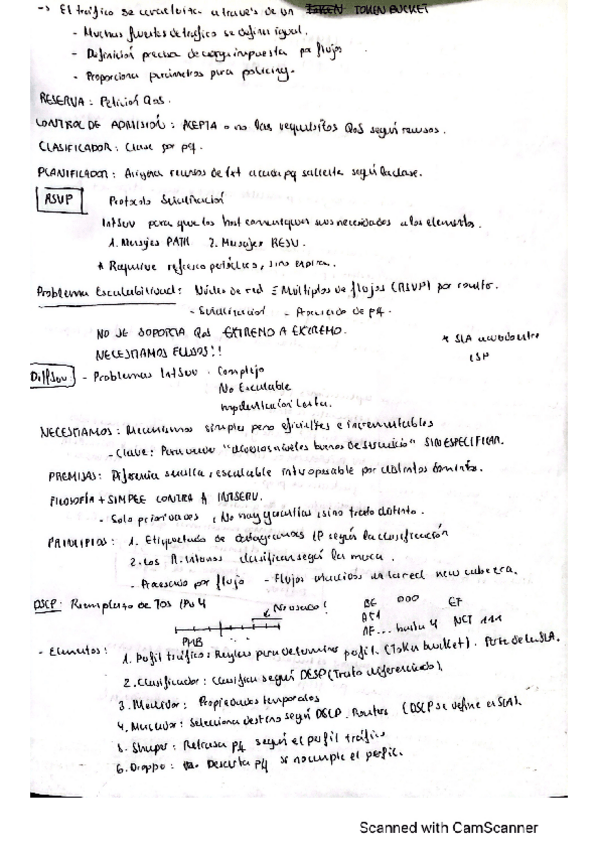 -> El tráfico se caracteriza a través de un TOKEN BUCKET
- Muchas fuentes de tráfico se definen igual.
- Definición precisa de carga impuesta por flujos
- Proporciona parámetros para policing.
RESERVA: Petición QoS.
CONTROL DE ADMISIÓN: ACEPTA o no los requisitos QoS según recursos.
CLASIFICADOR: Clase por pq.
PLANIFICADOR: Asigna recursos de txt a cada pq saliente según la clase.
RSVP Protocolo Señalización
IntServ para que los host comuniquen sus necesidades a los elementos.
1. Mensajes PATH 2. Mensajes RESV.
* Requiere refresco periódico, sino expira.
Problema Escalabilidad: Núcleo de red Múltiples de flujos (RSVP) por router.
- Señalización - Procesado de pq.
NO SE SOPORTA QoS EXTREMO A EXTREMO.
* SLA entre
ISP
NECESITAMOS FLUJOS!!
DiffServ - Problemas IntServ. Complejo
No Escalable
Implementación Lenta.
NECESITAMOS: Mecanismos simples pero eficientes e incrementables
- Clave: Para varios niveles buenos de servicio" SIN ESPECIFICAR.
PREMISAS: Diferencia sencilla, escalable interoperable por distintos dominios.
FILOSOFÍA + SIMPLE CONTRA A INTSERV.
- Solo prioridades, No hay garantías, sino trato distinto.
PRINCIPIOS: 1. Etiquetado de datagramas IP según la clasificación
2. Los R. internos clasifican según la marca.
- Procesado por flujo - Flujos en la red new cabecera.
DSCP: Reemplazo de TOS IPv4
No usado!
BE 000 EF
AF1
AF... hasta 4 NCT 111
PHB
- Elementos: 1. Perfil tráfico: Reglas para determinar perfil. (Token bucket). Parte de la SLA.
2. Clasificador: Clasifica según DSCP (Trato diferenciado).
3. Medidor: Propiedades temporales
4. Marcador: Selecciona destino según DSCP. Routers (DSCP se define en SLA).
5. Shaper: Retrasa pq según el perfil tráfico
6. Dropper: Descarta pq si no cumple el perfil.
Scanned with CamScanner